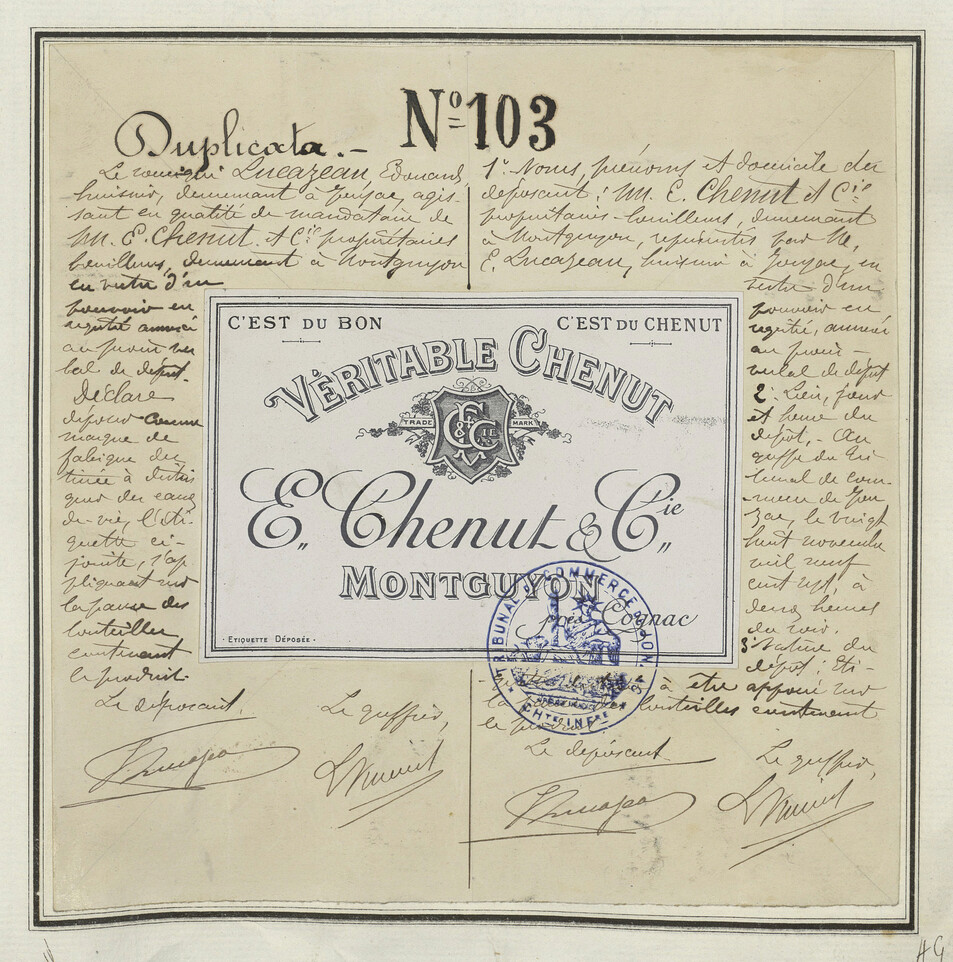 Nº 103
Duplicata.-
Le soussigné Lucazeau, Edouard,
huissier, demeurant à Jonzac, agis-
sant en qualité de mandataire de
MM. E. Chenut & Cie propriétaires
bouilleurs, demeurant à Montguyon
en vertu d'un
pouvoir en-
registré annexé
au procès ver
bal de dépôt.
Déclare
déposer comme
marque de
fabrique des
tinée à distin
guer des eaux
de-vie, l'éti-
quette ci-
jointe, s'ap
pliquant sur
la panse des
bouteilles
contenant
le produit.
Le déposant,
Le greffier,
1º Noms, prénoms et domicile du
déposant: MM. E. Chenut & Cie
propriétaires-bouilleurs, demeurant
à Montguyon, représentés par Me
E. Lucazeau, huissier à Jonzac, en
vertu d'un
pouvoir en
registré, annexé
au procès-
verbal de dépôt
2º Lieu, jour
et heure du
dépôt.- Au
greffe du tri
bunal de com-
merce de Jon
zac, le vingt
huit novembre
mil neuf
cent sept, à
deux heures
du soir.
3º Nature du
dépôt: Eti-
à être apposée sur
la bouteilles contenant
le produit.
Le déposant
Le greffier,
C'EST DU BON
C'EST DU CHENUT
VÉRITABLE CHENUT
TRADE MARK
E & C CIE
E. Chenut & Cie
MONTGUYON
près Cognac
- ETIQUETTE DÉPOSÉE -
TRIBUNAL DE COMMERCE DE JONZAC
CHTE INFRE